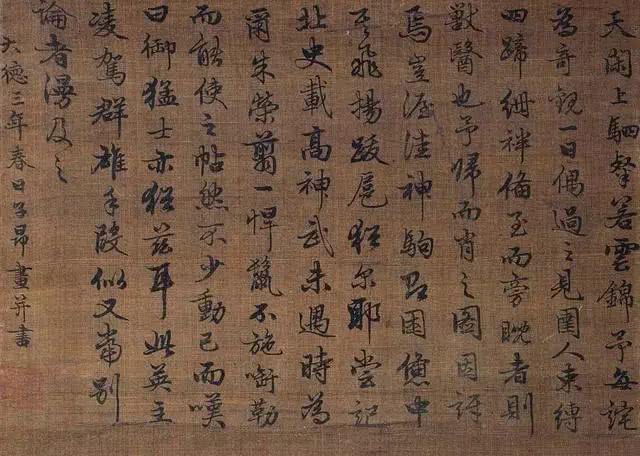 天閑上駟粲若雲錦予每詫
為奇觀一日偶過之見圉人束縛
四蹄細絆偹至而旁睨者則
獸醫也予歸而肖之圖因訝
焉豈渥洼神駒為圉僡中
不飛揚跋扈猶尔耶嘗記
北史載高神武未遇時為
爾朱榮翦一悍驥不施嚼勒
而能使之帖然不少動已而嘆
曰御猛士亦猶茲耳此英主
凌駕群雄手段似又當別
論者漫及之
大德三年春日子昂畫并書